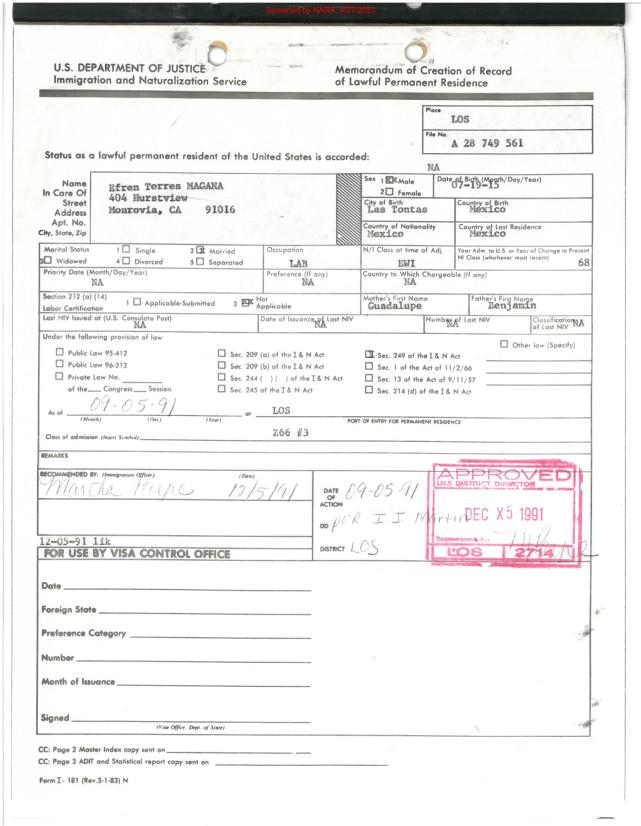 Screened by NARA, 4/27/2023
U.S. DEPARTMENT OF JUSTICE
Immigration and Naturalization Service
Memorandum of Creation of Record
of Lawful Permanent Residence
Place
LOS
File No.
A 28 749 561
Status as a lawful permanent resident of the United States is accorded:
NA
Name
In Care Of
Street
Address
Apt. No.
City, State, Zip
Efren Torres MAGANA
404 Hurstview
Monrovia, CA 91016
Sex 1 ☒ Male
2 ☐ Female
Date of Birth (Month/Day/Year)
07-19-15
City of Birth
Las Tontas
Country of Birth
Mexico
Country of Nationality
Mexico
Country of Last Residence
Mexico
Marital Status 1 ☐ Single 2 ☒ Married
3 ☐ Widowed 4 ☐ Divorced 5 ☐ Separated
Occupation
LAB
N/I Class at time of Adj.
EWI
Year Adm. to U.S. or Year of Change to Present
NI Class (whichever most recent) 68
Priority Date (Month/Day/Year)
NA
Preference (If any)
NA
Country to Which Chargeable (If any)
NA
Section 212 (a) (14)
Labor Certification
1 ☐ Applicable-Submitted 3 ☒ Not Applicable
Mother's First Name
Guadalupe
Father's First Name
Benjamin
Last NIV Issued at (U.S. Consulate Post)
NA
Date of Issuance of Last NIV
NA
Number of Last NIV
NA
Classification of Last NIV NA
Under the following provision of law
☐ Other law (Specify)
☐ Public Law 95-412
☐ Public Law 96-212
☐ Private Law No.
of the Congress Session
☐ Sec. 209 (a) of the I & N Act
☐ Sec. 209 (b) of the I & N Act
☐ Sec. 244 ( ) ( ) of the I & N Act
☐ Sec. 245 of the I & N Act
☒ Sec. 249 of the I & N Act
☐ Sec. 1 of the Act of 11/2/66
☐ Sec. 13 of the Act of 9/11/57
☐ Sec. 214 (d) of the I & N Act
As of 09-05-91 at LOS
(Month) (Day) (Year)
PORT OF ENTRY FOR PERMANENT RESIDENCE
Class of admission (Insert Symbol) Z66 #3
REMARKS
RECOMMENDED BY: (Immigration Officer) (Date)
Martha 12/5/91
DATE
OF
ACTION
09-05-91
DD per I I Martin
DISTRICT LOS
APPROVED
I.N.S DISTRICT DIRECTOR
DEC X5 1991
LOS 2714
12-05-91 lik
FOR USE BY VISA CONTROL OFFICE
Date
Foreign State
Preference Category
Number
Month of Issuance
Signed
(Visa Office, Dept. of State)
CC: Page 2 Master Index copy sent on
CC: Page 3 ADIT and Statistical report copy sent on
Form I - 181 (Rev.3-1-83) N